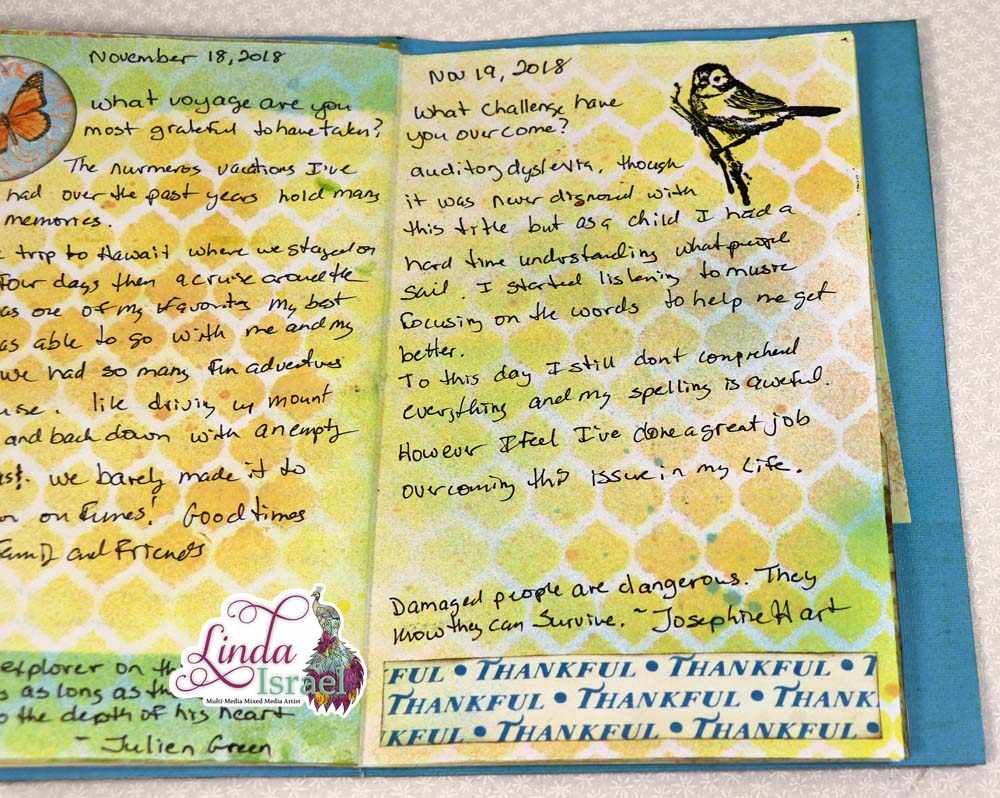 November 18, 2018
what voyage are you
most grateful to have taken?
The nurmeros vacations I've
had over the past years hold many
memories.
trip to Hawaii where we stayed on
four days then a cruise around the
as one of my Favorites My best
as able to go with me and my
we had so many Fun adventures
use. like driving up mount
and back down with an empty
we barely made it to
on Fumes! Good times
Family and Friends
explorer on th
s as long as th
o the depth of his heart
~ Julien Green
Linda
Israel
Multi-Media Mixed Media Artist
Nov 19, 2018
What Challenge have
you overcome?
auditory dyslexia, though
it was never dignosed with
this title but as a child I had a
hard time understanding what people
said. I started listening to music
Focusing on the words to help me get
better.
To this day I still dont comprehend
everything and my spelling is aweful.
However I feel I've done a great job
overcoming this issue in my Life.
Damaged people are dangerous. They
know they can Survive. ~ Josephine Hart
FUL • THANKFUL • THANKFUL • T
THANKFUL • THANKFUL • THANK
KFUL • THANKFUL • THANKFUL •